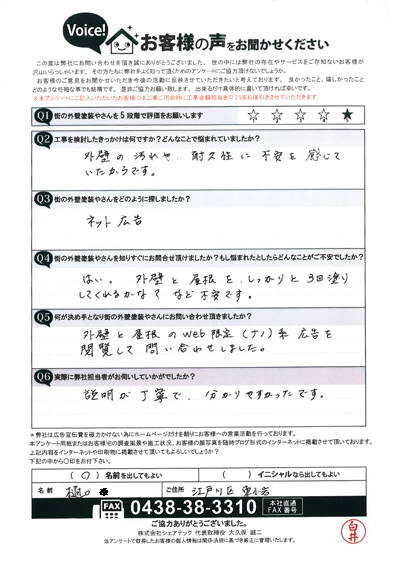 Voice!
お客様の声をお聞かせください
この度は弊社にお問い合わせを頂き誠にありがとうございました。世の中には弊社の存在やサービスをご存知ないお客様が
沢山いらっしゃいます。その方たちに弊社をよく知って頂くためのアンケートにご協力頂けないでしょうか。
お客様のご意見をお聞かせいただき今後の活動に反映させていただきたいと考えております。良かったこと、嬉しかったこと
どのような些細な事でも結構です。是非ご協力お願い致します。出来るだけ具体的に書いて頂ければ幸いです。
※本アンケートにご記入いただいたお客様には工事ご用命時に工事金額税抜きの2%をお値引きさせていただきます。
Q1 街の外壁塗装やさんを5段階で評価をお願いします ☆ ☆ ☆ ☆ ★
Q2 工事を検討したきっかけは何ですか?どんなことで悩まれていましたか?
外壁の汚れや、耐久性に不安を感じて
いたからです。
Q3 街の外壁塗装やさんをどのように探しましたか?
ネット広告
Q4 街の外壁塗装やさんを知りすぐにお問合せ頂けましたか?もし悩まれたとしたらどんなことがご不安でしたか?
はい。外壁と屋根を、しっかりと3回塗り
してくれるかな?など不安です。
Q5 何が決め手となり街の外壁塗装やさんにお問い合わせ頂きましたか?
外壁と屋根のWeb限定(ナノ)系広告を
閲覧して問い合わせしました。
Q6 実際に弊社担当者がお伺いしていかがでしたか?
説明が丁寧で、分かりやすかったです。
*弊社は広告宣伝費を極力かけない為にホームページだけを頼りにお客様への営業活動を行っております。
本アンケート用紙またはお客様宅の調査風景や施工状況、お客様の顔写真を随時ブログ形式のインターネットに掲載させて頂いております。
上記内容をインターネットや印刷物に掲載させて頂いてもよろしいでしょうか?
下記の中から〇印をお付下さい。
(〇)名前を出してもよい ( )イニシャルなら出してもよい
名前 樋口 * ご住所 江戸川区
FAX 0438-38-3310 本社直通 FAX番号
ご協力ありがとうございました。
株式会社シェアテック 代表取締役 大久保 誠二
当アンケートで取得したお客様の個人情報は関係法規に基づき厳正に管理いたします。
白井